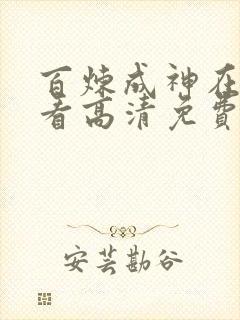 百炼成神在
看高清免費
安芸勘谷